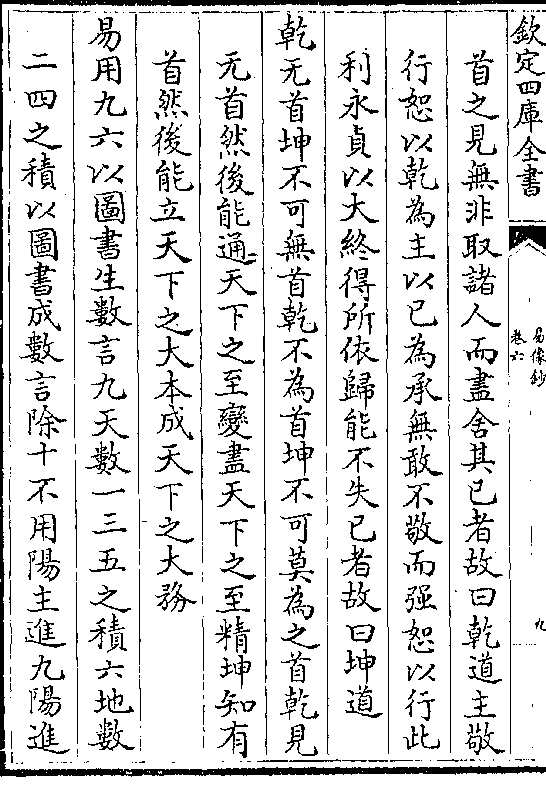 欽定四庫全書
易像鈔
卷六
九
首之見無非取諸人而盡舍其已者故曰乾道主敬
行恕以乾為主以已為承無敢不敬而强恕以行此
利永貞以大終得所依歸能不失已者故曰坤道
乾无首坤不可無首乾不為首坤不可莫為之首乾見
无首然後能通天下之至變盡天下之至精坤知有
首然後能立天下之大本成天下之大務
易用九六以圖書生數言九天數一三五之積六地數
二四之積以圖書成數言除十不用陽主進九陽進